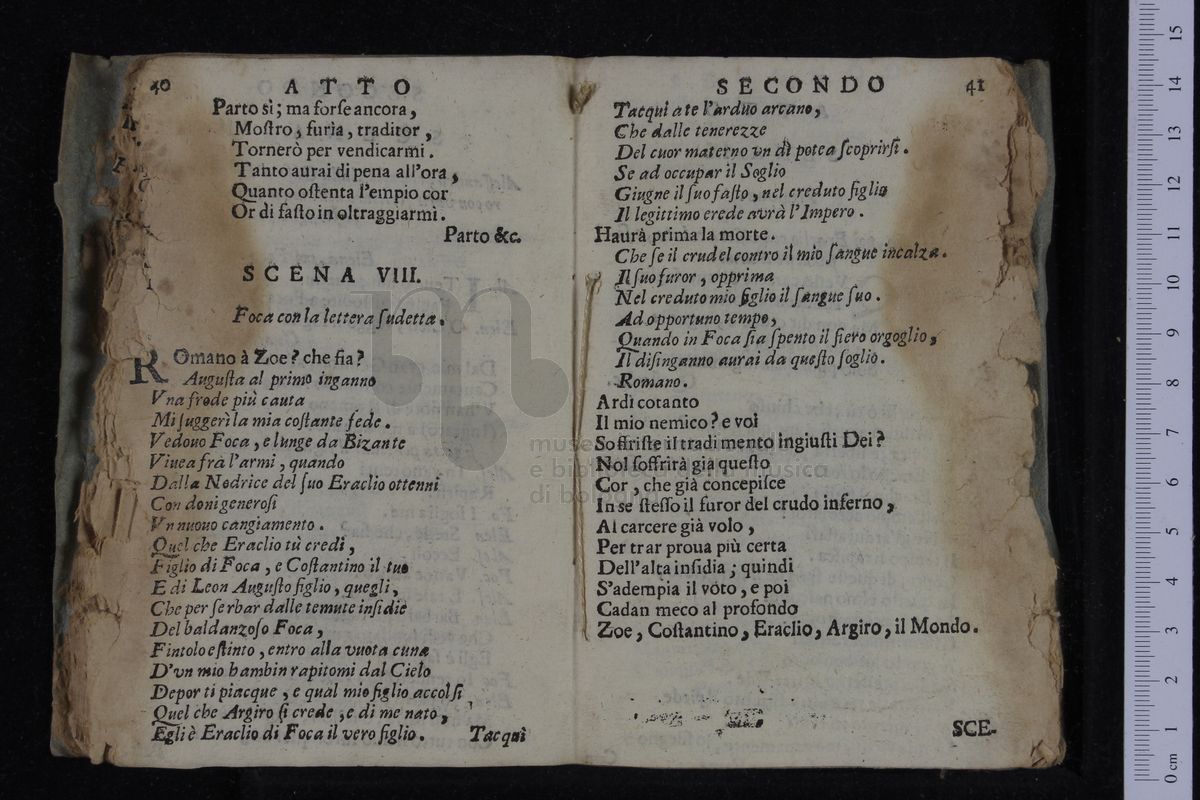 40 ATTO
Parto sì; ma forſe ancora,
Moſtro, furia, traditor,
Tornerò per vendicarmi.
Tanto aurai di pena all'ora,
Quanto oſtenta l'empio cor
Or di faſto in oltraggiarmi.
Parto &c.
SCENA VIII.
Foca con la lettera ſudetta.
ROmano à Zoe? che fia?
Auguſta al primo inganno
Vna frode più cauta
Mi ſuggerì la mia coſtante fede.
Vedouo Foca, e lunge da Bizante
Viuea frà l'armi, quando
Dalla Nodrice del ſuo Eraclio ottenni
Con doni generoſi
Vn nuouo cangiamento.
Quel che Eraclio tù credi,
Figlio di Foca, e Coſtantino il tuo
E di Leon Auguſto figlio, quegli,
Che per ſerbar dalle temute inſidie
Del baldanzoſo Foca,
Fintolo eſtinto, entro alla vuota cuna
D'vn mio bambin rapitomi dal Cielo
Depor ti piacque, e qual mio figlio accolſi
Quel che Argiro ſi crede, e di me nato,
Egli è Eraclio di Foca il vero figlio.
Tacqui
SECONDO 41
Tacqui a te l'arduo arcano,
Che dalle tenerezze
Del cuor materno vn dì potea ſcoprirſi.
Se ad occupar il Soglio
Giugne il ſuo faſto, nel creduto figlio
Il legittimo erede avrà l'Impero.
Haurà prima la morte.
Che ſe il crudel contro il mio ſangue incalza.
Il ſuo furor, opprima
Nel creduto mio figlio il ſangue ſuo.
Ad opportuno tempo,
Quando in Foca ſia ſpento il fiero orgoglio,
Il diſinganno aurai da queſto foglio.
Romano.
Ardì cotanto
Il mio nemico? e voi
Soffriſte il tradimento ingiuſti Dei?
Nol ſoffrirà già queſto
Cor, che già concepiſce
In se ſteſſo il furor del crudo inferno,
Al carcere già volo,
Per trar proua più certa
Dell'alta inſidia; quindi
S'adempia il vóto, e poi
Cadan meco al profondo
Zoe, Coſtantino, Eraclio, Argiro, il Mondo.
SCE-
museo
e biblioteca della musica
di bologna
0 cm 1 2 3 4 5 6 7 8 9 10 11 12 13 14 15